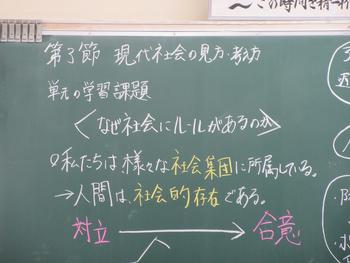 この時間を精一杯
第3節 現代社会の見方・考え方
単元の学習課題
〈なぜ社会にルールがあるのか〉
○私たちは、様々な社会集団に所属している。
→人間は、社会的存在である。
対立 → 合意